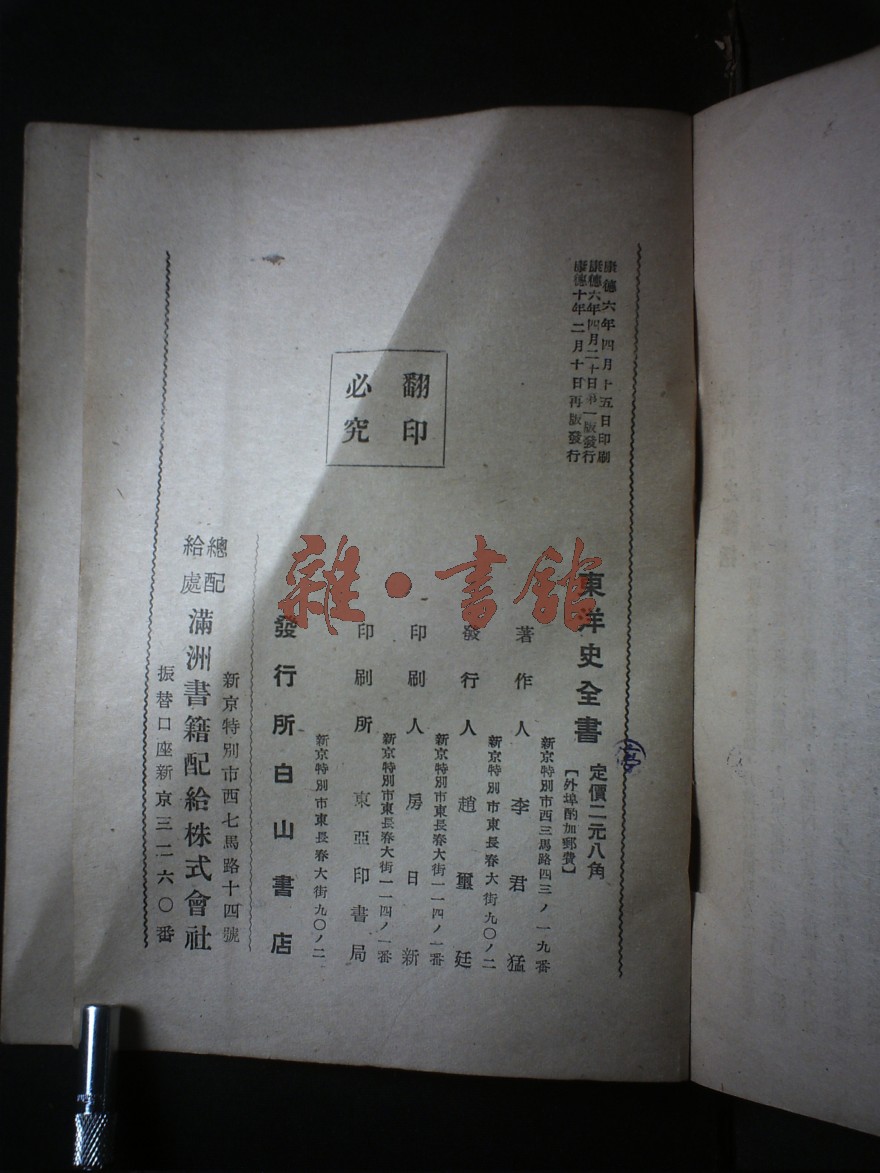 康德六年四月十五日印刷
康德六年四月二十日第一版發行
康德十年二月十日再版發行
翻印
必究
東洋史全書
定價二元八角
【外埠酌加郵費】
新京特別市西三馬路四三ノ一九番
著作人 李君猛
新京特別市東長春大街九〇ノ二
發行人 趙璽廷
新京特別市東長春大街一一四ノ一番
印刷人 房日新
新京特別市東長春大街一一四ノ一番
印刷所 東亞印書局
新京特別市東長春大街九〇ノ二
發行所 白山書店
新京特別市西七馬路十四號
總配給處 滿洲書籍配給株式會社
振替口座新京三二六〇番
雜·書館